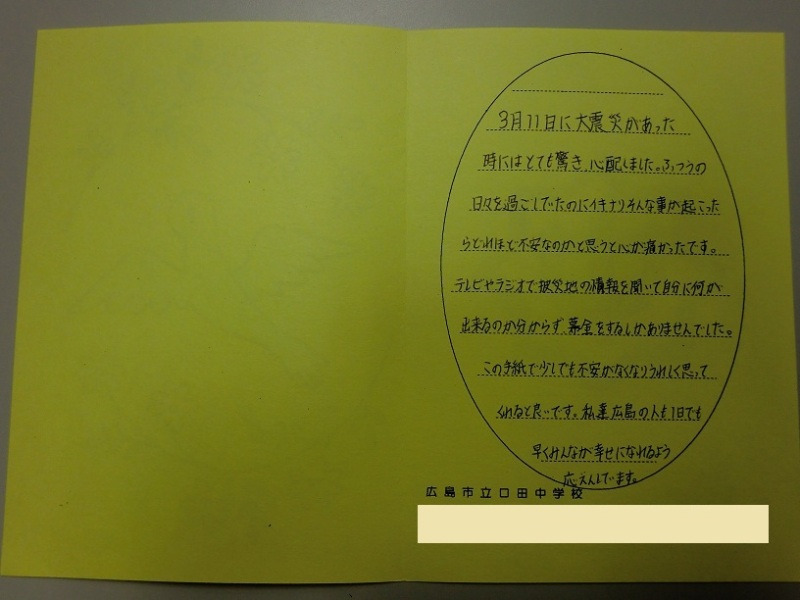 3月11日に大震災があった
時にはとても驚き、心配しました。ふつうの
日々を過ごしていたのにイキナリそんな事が起こった
らどれほど不安なのかと思うと心が痛かったです。
テレビやラジオで被災地の情報を聞いて自分に何が
出来るのか分からず、募金をするしかありませんでした。
この手紙で少しでも不安がなくなりうれしく思って
くれると良いです。私達広島の人も1日でも
早くみんなが幸せになれるよう
応えんしています。
広島市立口田中学校